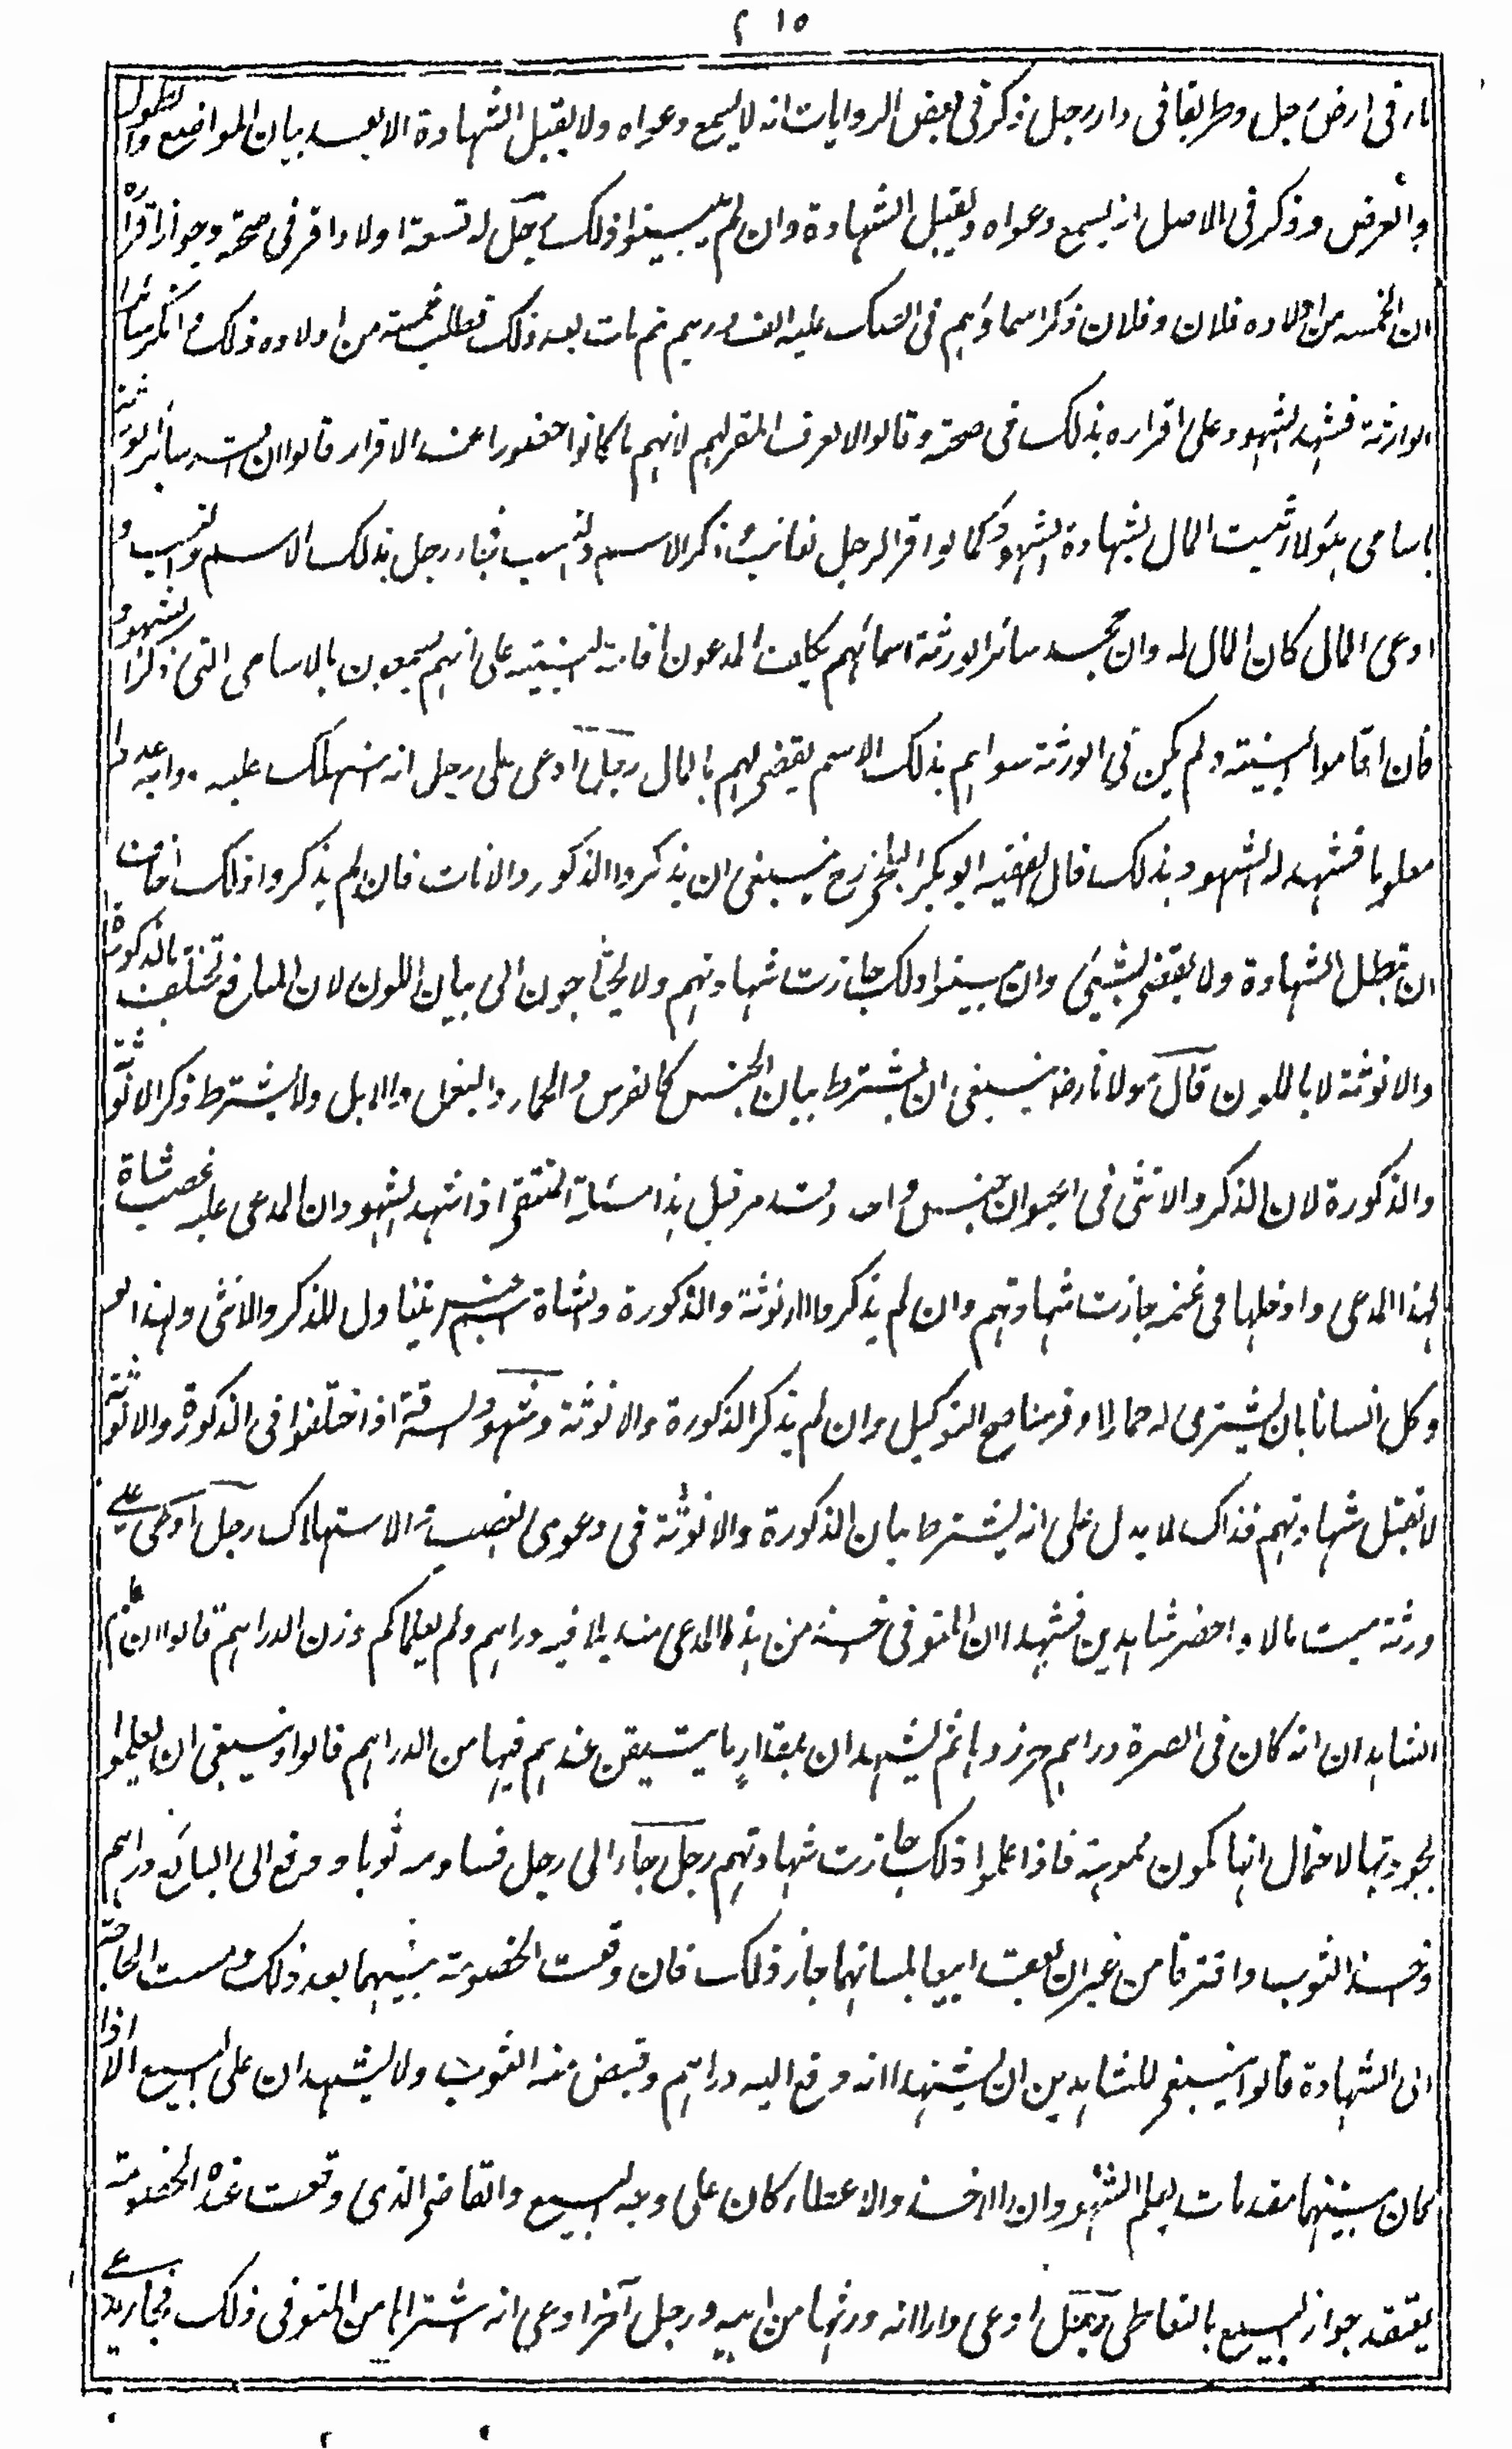 ٢١٥
نار فى ارض رجل وطريقا فى دار رجل ذكر فى بعض الروايات انه لا يسمع دعواه ولا يقبل الشهادة الا بعد بيان المواضع والطول
والعرض وذكر فى الاصل انه يسمع دعواه ويقبل الشهادة وان لم يبينوا ذلك رجل له تسعة اولاد اقر فى صحته وجواز اقراره
ان الخمسة من اولاده فلان وفلان ذكر اسماؤهم فى الصك عليه الف درهم ثم مات بعد ذلك فطلب خمسة من اولاده ذلك وانكر سائر
الورثة فشهد الشهود على اقراره بذلك فى صحته وقالوا لا نعرف المقر لهم لانهم ما كانوا حضورا عند الاقرار قالوا ان سائر الورثة
باسامى هؤلاء ثبت المال بشهادة الشهود كما لو اقر الرجل لغائب وذكر الاسم والنسب فجاء رجل بذلك الاسم والنسب و
ادعى المال كان المال له وان جحد سائر الورثة اسمائهم يكلف المدعون اقامة البينة على انهم يسمون بالاسامى التى ذكر الشهود
فان اقاموا البينة ولم يكن فى الورثة سواهم بذلك الاسم يقضى لهم بالمال رجل ادعى على رجل انه استهلك عليه دوابه عددا
معلوما فشهد له الشهود بذلك قال الفقيه ابو بكر البلخى رح ينبغى ان يذكروا الذكور والاناث فان لم يذكروا ذلك اخاف
ان تبطل الشهادة ولا يقضى بشيئ وان بينوا ذلك جازت شهادتهم ولا يحتاجون الى بيان اللون لان المنافع تختلف بالذكورة
والانوثة لا باللون قال مولانا رض ينبغى ان يشترط بيان الجنس كالفرس والحمار والبغل والابل ولا يشترط ذكر الانوثة
والذكورة لان الذكر والانثى فى الحيوان جنس واحد وقد مر قبل هذا مسئلة المنتقى اذا شهد الشهود ان المدعى عليه غصب شاة
لهذا المدعى وادخلها فى غنمه جازت شهادتهم وان لم يذكروا الانوثة والذكورة والشاة اسم جنس يتناول للذكر والانثى ولهذا لو
وكل انسانا بان يشترى له حمارا او فرسا صح التوكيل وان لم يذكر الذكورة والانوثة وشهود السرقة اذا اختلفوا فى الذكورة والانوثة
لا تقبل شهادتهم فذاك لا يدل على انه يشترط بيان الذكورة والانوثة فى دعوى الغصب والاستهلاك رجل ادعى على
ورثة ميت مالا واحضر شاهدين فشهدا ان المتوفى اخذ من هذا المدعى منديلا فيه دراهم ولم يعلما كم وزن الدراهم قالوا ان علم
الشاهدان انه كان فى الصرة دراهم حرزوها ثم يشهدان بمقدار ما يتيقن عندهم فيها من الدراهم قالوا وينبغى ان يعلموا
بجودتها لاحتمال انها تكون مموهة فاذا علموا ذلك جازت شهادتهم رجل جاء الى رجل فساومه ثوبا ودفع الى البائع دراهم
واخذ الثوب وافترقا من غير ان يعقدا بيعا بلسانهما جاز ذلك فان وقعت الخصومة بينهما بعد ذلك ومست الحاجة
الى الشهادة قالوا ينبغى للشاهدين ان يشهدا انه دفع اليه دراهم وقبض منه الثوب ولا يشهدان على البيع الا اذا
كان بينهما مقدمات يعلم الشهود ان الاخذ والاعطاء كان على وجه البيع والقاضى الذى وقعت عنده الخصومة
يعتقد جواز البيع بالتعاطى رجل ادعى دارا انه ورثها من ابيه ورجل آخر ادعى انه اشتراها من المتوفى ذلك فجاء